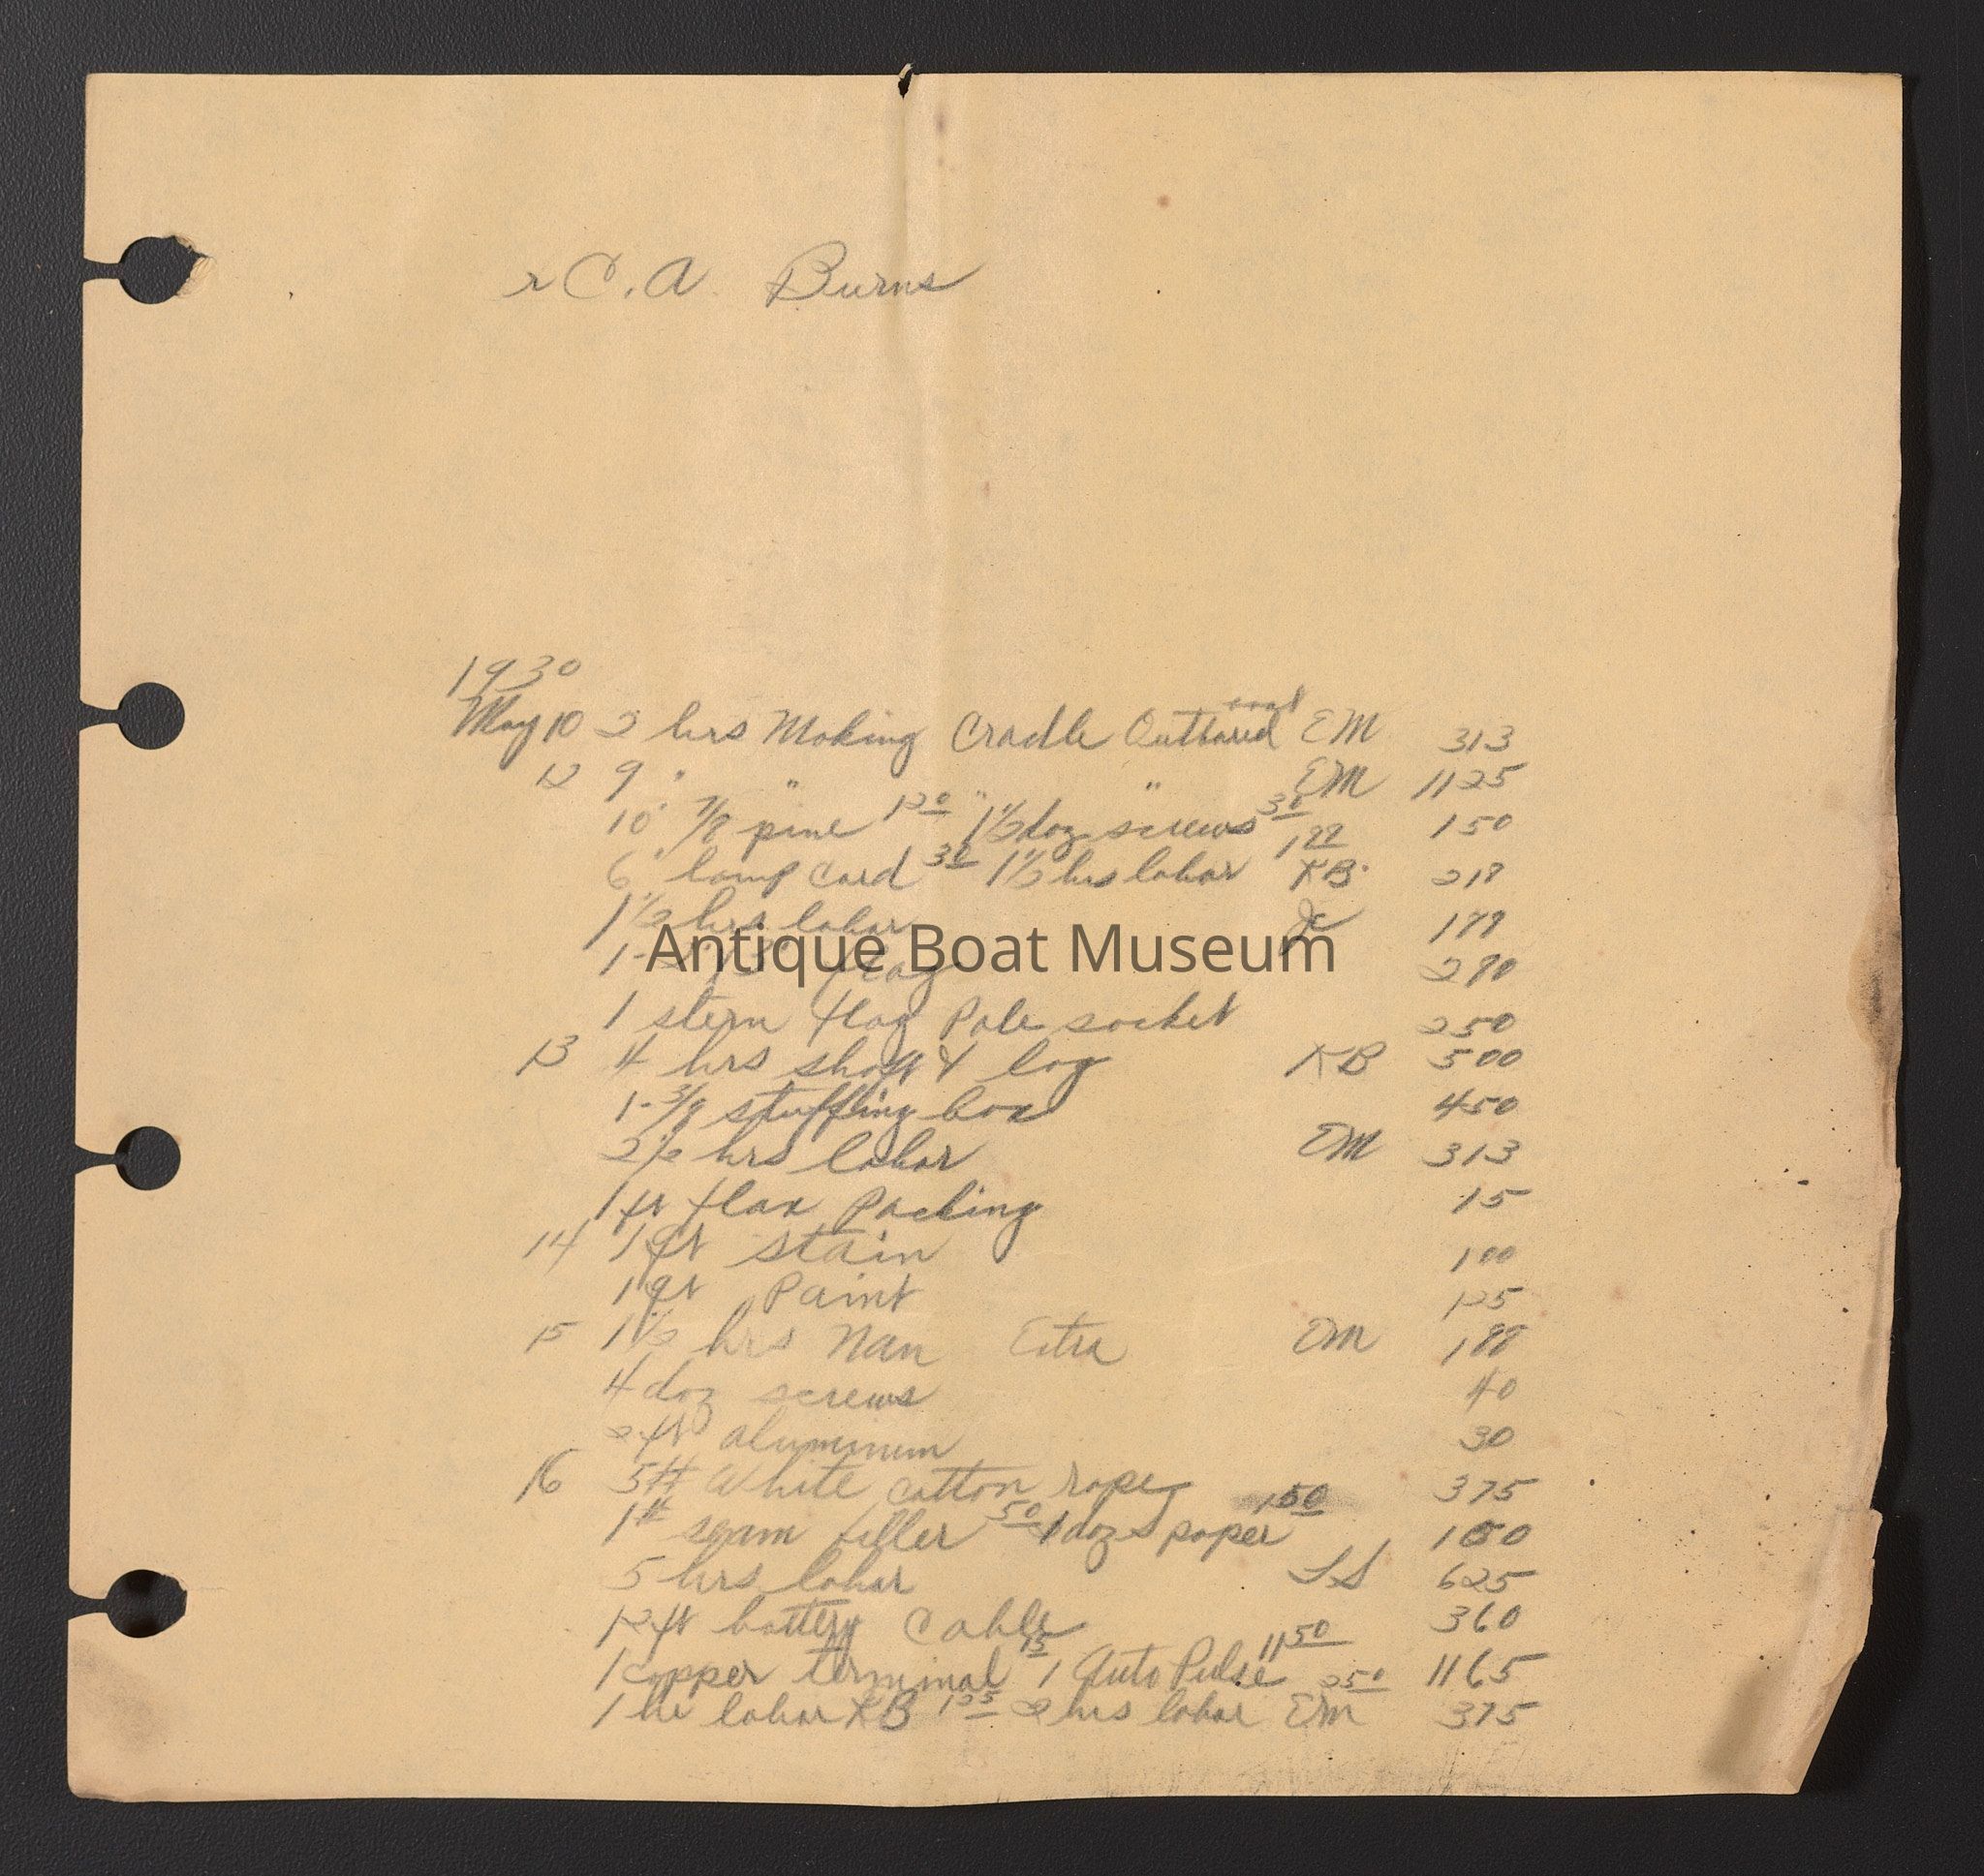 r C. A. Burns
1930
May 10 2 hrs Making Cradle Outboard boat EM 313
12 9 " " " " EM 1125
10' 7/8 pine 120 1 1/2 doz screws 30 150
6' lamp cord 30 1 1/2 hrs labor 188 KB. 218
1 1/2 hrs labor 188
1- flag 270
1 stern flag Pole socket 250
13 4 hrs shaft & log KB 500
1-3/8 stuffing box 450
2 1/2 hrs labor EM 313
1 ft flax Packing 15
14 1 qt stain 100
1 qt Paint 125
15 1 1/2 hrs Nan Extra EM 188
4 doz screws 40
2 ft aluminum 30
16 5# White cotton rope 375
1# seam filler 50 1 doz s paper 150
5 hrs labor 625
12 ft battery Cable 360
1 copper terminal 15 1 Auto Pulse 1150 1165
1 hr labor KB 125 2 hrs labor EM 250 375
Antique Boat Museum